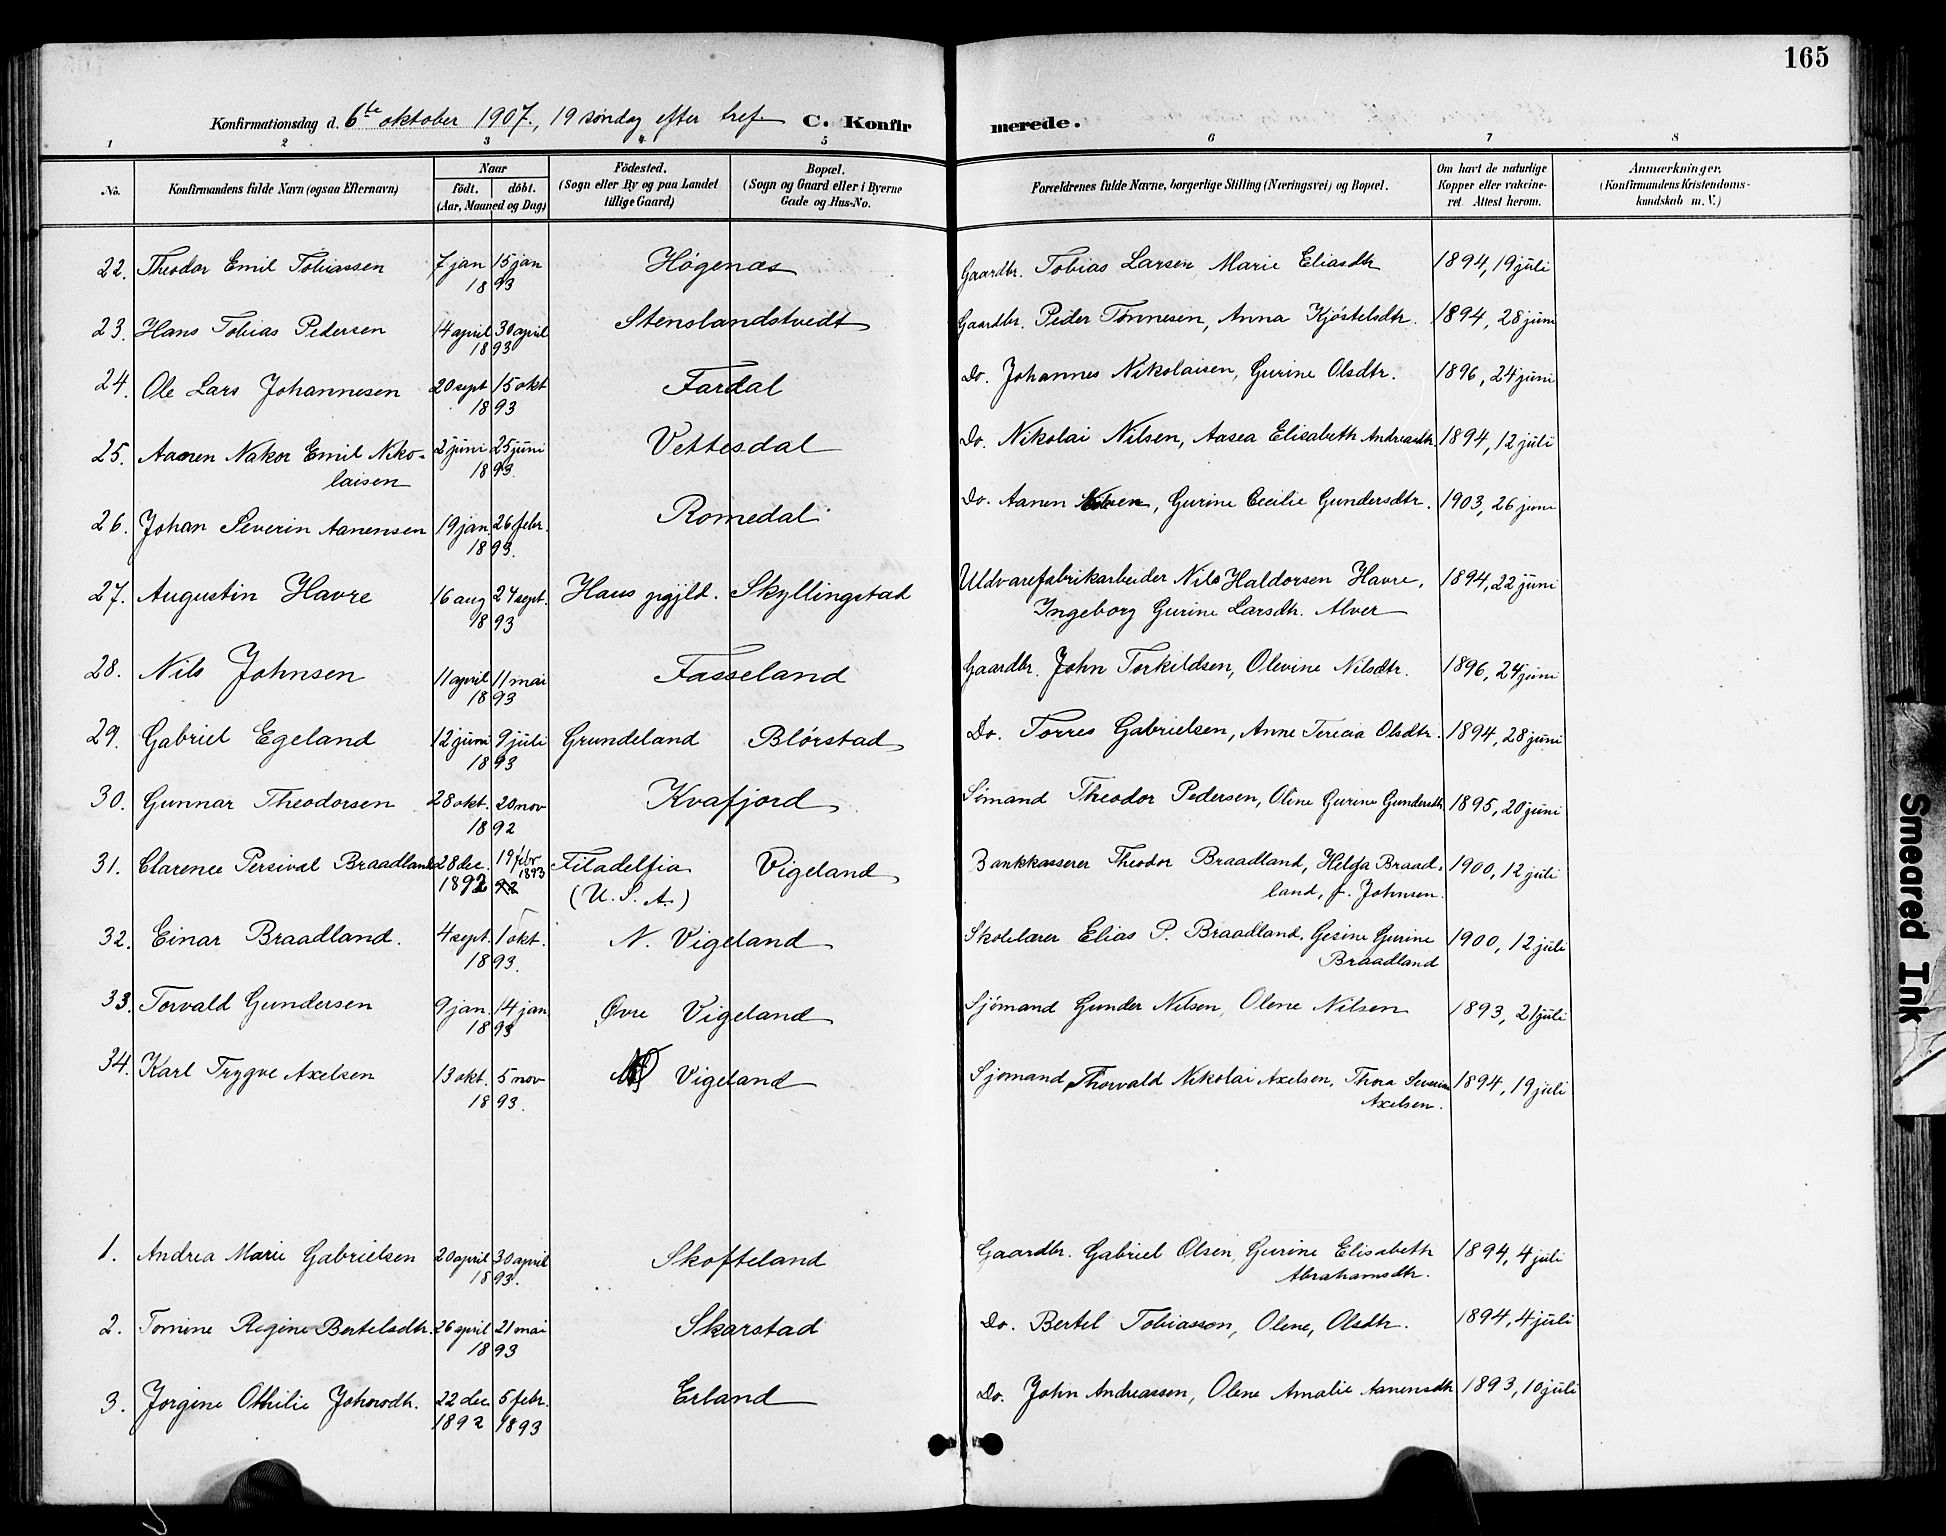 165
Konfirmationsdag d. 6te oktober 1907, 19 söndag efter tref. C. Konfirmerede.
1 2 3 4 5 6 7 8
No. Konfirmandens fulde Navn (ogsaa Efternavn) Naar födt. döbt. (Aar, Maaned og Dag) Födested. (Sogn eller By og paa Landet tillige Gaard) Bopæl. (Sogn og Gaard eller i Byerne Gade og Hus-No. Forældrenes fulde Navne, borgerlige Stilling (Næringsvei) og Bopæl. Om havt de naturlige Kopper eller vakcineret. Attest herom. Anmærkninger, (Konfirmandens Kristendomskundskab m. V.)
22. Theodor Emil Tobiassen 7 jan 15 jan 1893 Högenæs Gaardbr. Tobias Larsen, Marie Eliasdtr 1894, 19 juli
23. Hans Tobias Pedersen 14 april 30 april 1893 Stenslandstvedt Gaardbr. Peder Tönnesen, Anna Kjöstelsdtr. 1894, 28 juni
24. Ole Lars Johannesen 20 sept 15 okt 1893 Fardal Do. Johannes Nikolaisen, Gurine Olsdtr. 1896, 24 juni
25. Aanen Nakor Emil Niko-
laisen 2 juni 25 juni 1893 Vettesdal Do. Nikolai Nilsen, Aasea Elisabeth Andreasdtr. 1894, 12 juli
26. Johan Severin Aanensen 19 jan. 26 febr. 1893. Romedal Do. Aanen Nilsen, Gurine Cecilie Gundersdtr. 1903, 26 juni
27. Augustin Havre 16 aug 24 sept. 1893 Haus pgjld. Skyllingstad Uldvarefabrikarbeider Nils Haldorsen Havre, 1894, 22 juni
Ingeborg Gurine Larsdtr. Alver
28. Nils Johnsen 11 april 11 mai 1893 Fasseland Gaardbr. John Torkildsen, Olevine Nilsdtr. 1896, 24 juni
29. Gabriel Egeland 12 juni 9 juli 1893 Grundeland Blörstad Do. Torres Gabrielsen, Anne Terecia Olsdtr. 1894, 28 juni
30. Gunnar Theodorsen 28 okt. 20 nov 1892 Kvafjord Sömand Theodor Pedersen, Oline Gurine Gundersdtr 1895, 20 juni
31. Clarence Persival Braadland 28 dec. 1892 19 febr 1893 92 Filadelfia (U. S. A.) Vigeland Bankkasserer Theodor Braadland, Helga Braad- 1900, 12 juli
land, f. Johnsen.
32. Einar Braadland. 4 sept. 1 okt. 1893. N. Vigeland Skolelærer Elias P. Braadland, Gesine Gurine 1900, 12 juli
Braadland
33. Torvald Gundersen 9 jan. 14 jan. 1893 Øvre Vigeland Sjömand Gunder Nilsen, Olene Nilsen 1893, 21 juli
34. Karl Trygve Axelsen 13 okt. 5 nov 1893. Vigeland Sjömand Thorvald Nikolai Axelsen, Thora Severine 1894, 19 juli
Axelsen.
1. Andrea Marie Gabrielsen 20 april 30 april 1893. Skofteland Gaardbr. Gabriel Olsen, Gurine Elisabeth 1894, 4 juli
Abrahamsdtr.
2. Tomine Regine Bertelsdtr. 26 april 21 mai 1893 Skarstad Do. Bertel Tobiasson, Olene, Olsdtr. 1894, 4 juli
3. Jorgine Othilie Johnsdtr. 22 dec 1892 5 febr. 1893 Erland Do. John Andreassen, Olene Amalie Aanensdtr 1893, 10 juli
Smeared Ink